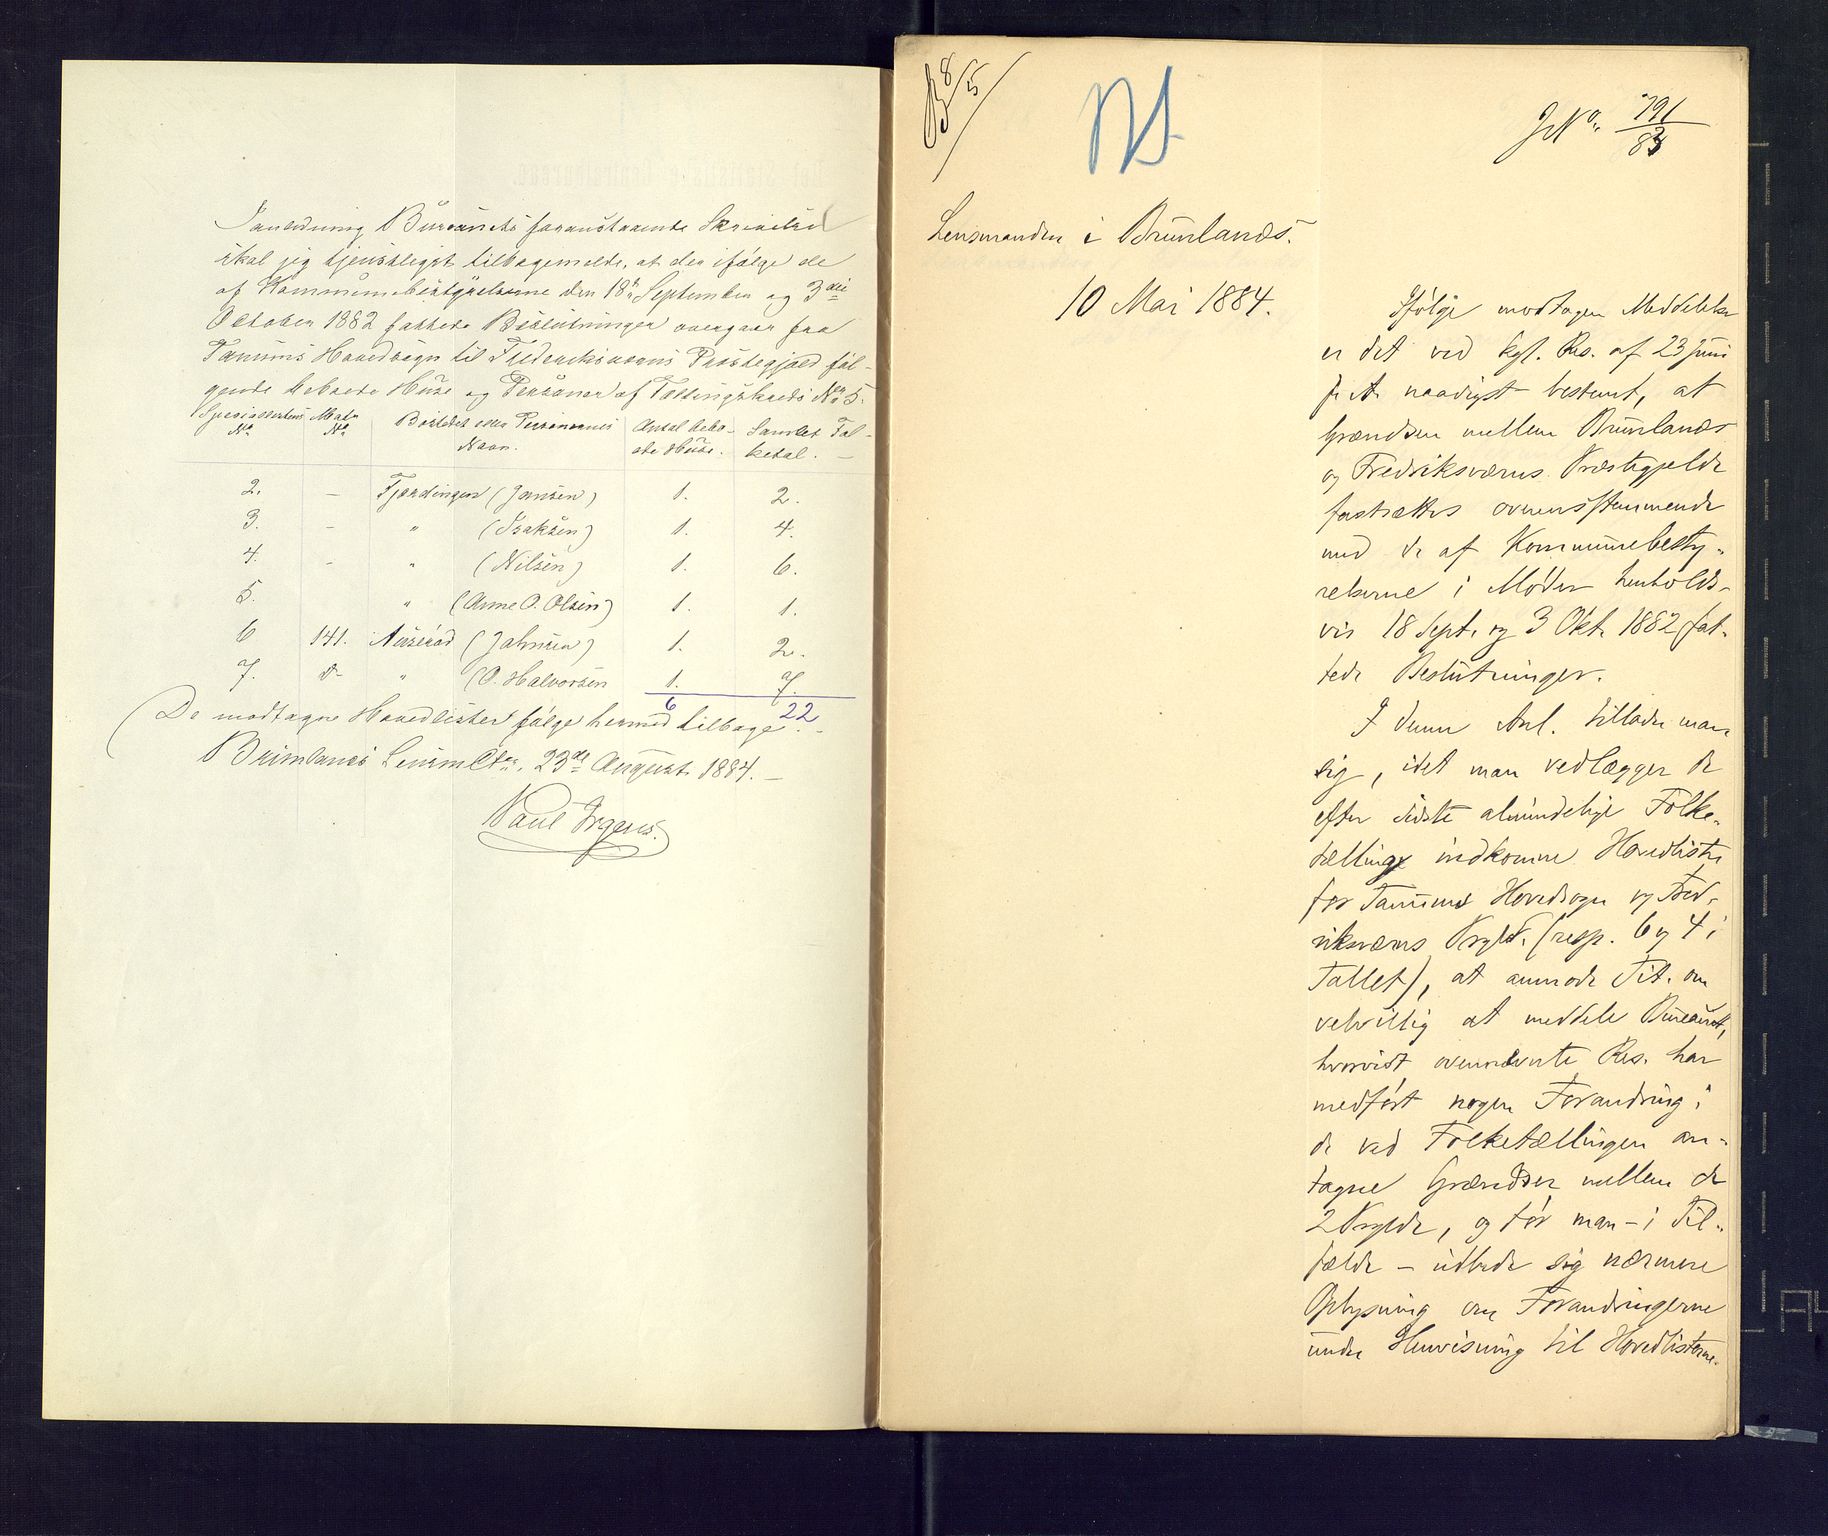 I anledning Bureauets foranstaaende Skrivelse
skal jeg tjenstligst tilbagemelde, at der ifølge de
af Kommunebestyrelserne den 18de September og 3die
October 1882 fattede Beslutninger overgaar fra
Tanums Hovedsogn til Frederiksværns Præstegjæld føl-
gende beboede Huse og Personer af Tællingskreds No 5.
Specialistens No. Matr. No. Bostedet eller Personernes Navn. Antal bebo- ede Huse. Samlet Fol- ketal.
2. – Fjærdingen (Jansen) 1. 2.
3. – " (Isaksen) 1. 4.
4. – " (Nilsen) 1. 6.
5. " (Anne O. Olsen) 1. 1.
6 141. (Johnsen) 1. 2.
7. d- " (O. Halvorsen 1. 7.
6 22
De modtagne Hovedlister følge hermed tilbage.
Brunlanæs 23de August 1884.
Paul Irgens.
B 8/5
JNo. 791/83
Lensmanden i Brunlanæs.
10 Mai 1884.
Ifølge modtagen Meddelelse
er det ved kgl. Res. af 23 Juni
f. A. naadigst bestemt, at
Grændsen mellem Brunlanæs
og Fredriksværns Præstegjelde
fastsættes overensstemmende
med de af Kommunebesty-
relserne i Møder henholds-
vis 18 Sept. og 3 Okt. 1882 fat-
tede Beslutninger.
I denne Anl. tillader man
sig, idet man vedlægger de
efter sidste almindelige Folke-
tælling indkomne Hovedlister
for Tanums Hovedsogn og Fred-
riksværns Prgld. (resp. 6 og 4 i
Tallet), at anmode Tit. om
velvillig at meddele Bureauet,
hvorvidt ovennævnte Res. har
medført nogen Forandring i
de ved Folketællingen an-
tagne Grændser mellem de
2 Prgjelde, og tør man – i Til-
fælde – udbede sig nærmere
Oplysning om Forandringerne
under Henvisning til Hovedlisterne.